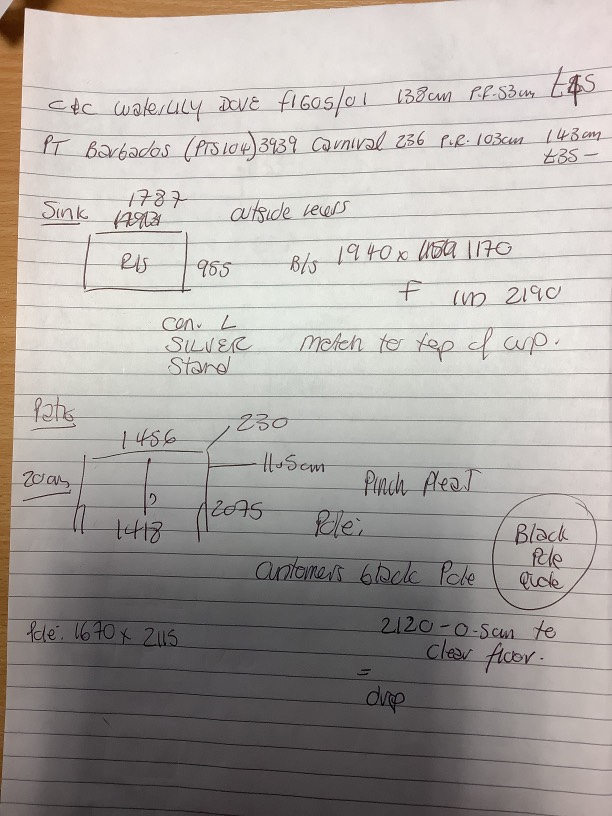 C&C Waterlily Dove f1605/01 138cm P.R. 53cm £45
PT Barbados (PTS104) 3939 Carnival 236 P.R. 103cm 143cm
£35 -
1787
Sink outside
R/S 955 B/S 1940 x 1170
F 2190
con. L
SILVER match to top of cup.
Stand
Patio
1456 230
11.5cm
20cm
Pinch Pleat
1418 2075
Pole:
Black
Pole
Quote
Customers black Pole
Pole: 1670 x 2115
2120 - 0.5cm to
clear floor.
=
drop